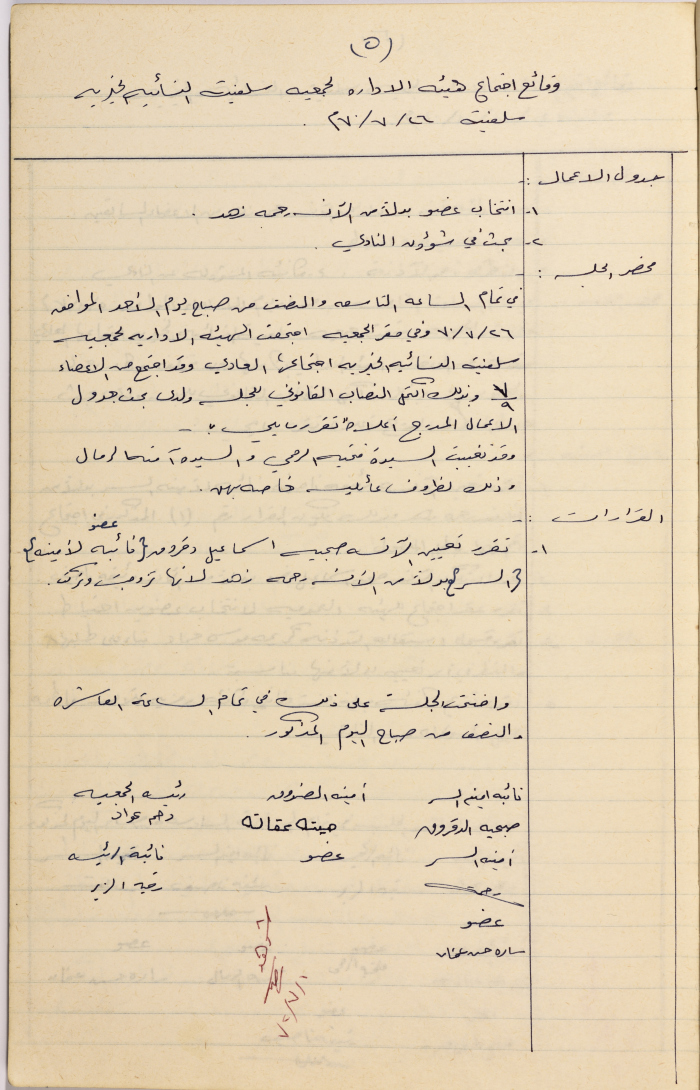 (٥)
وقائع اجتماع هيئه الاداره لجمعيه سلفيت النسائيه الخيريه
سلفيت ٢٦/٧/٧٠م.
جدول الاعمال :-
١- انتخاب عضو بدلاً من الآنسه رحمه زهد.
٢- بحث في شؤون النادي.
محضر الجلسه :-
في تمام الساعه التاسعه والنصف من صباح يوم الأحد الموافق
٢٦/٧/٧٠ وفي مقر الجمعيه اجتمعت الهيئه الاداريه لجمعيه
سلفيت النسائيه الخيريه اجتماعها العادي وقد اجتمع من الاعضاء
٧/٩ وبذلك اكتمل النصاب القانوني للجلسه ولدى بحث جدول
الاعمال المدرج أعلاه تقرر مايلي :-
وقد تغيبت السيدة فتحيه الرمحي والسيدة آمنه الرمال
وذلك لظروف عائليه خاصه بهن.
القرارات :-
عضو
١- تقرر تعيين الآنسه صبحيه اسماعيل دقروق {نائبه لأمينه}
{السر} بدلاً من الآنسه رحمه زهد لانها تزوجت وتركت.
واختتمت الجلسة على ذلك في تمام الساعة العاشره
والنصف من صباح اليوم المذكور.
نائبه امينه السر أمينه الصندوق رئيسه الجمعيه
صبحيه الدقروق هيته عقاله
أمينه السر عضو نائبة الرئيسه
رحمه رقيه الزير
عضو
ساره حسن عفانه